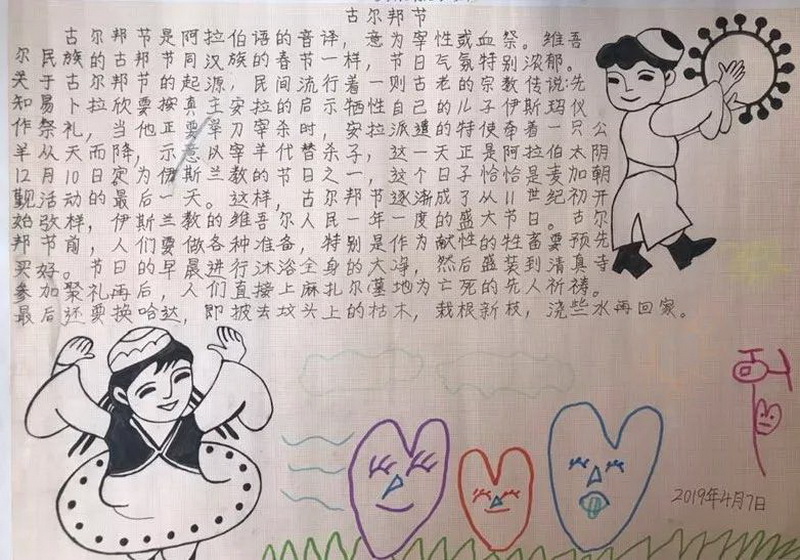 古尔邦节
古尔邦节是阿拉伯语的音译，意为宰性或血祭。维吾
尔民族的古邦节同汉族的春节一样，节日气氛特别浓郁。
关于古尔邦节的起源，民间流行着一则古老的宗教传说：先
知易卜拉欣要按真主安拉的启示牺牲自己的儿子伊斯玛仪
作祭礼，当他正要举刀宰杀时，安拉派遣的特使牵着一只公
羊从天而降，示意以宰羊代替杀子，这一天正是阿拉伯太阴
12月10日定为伊斯兰教的节日之一，这个日子恰恰是麦加朝
觐活动的最后一天。这样，古尔邦节逐渐成了从11世纪初开
始改样，伊斯兰教的维吾尔人民一年一度的盛大节日。古尔
邦节前，人们要做各种准备，特别是作为献性的牲畜要预先
买好。节日的早晨进行沐浴全身的大净，然后盛装到清真寺
参加聚礼再后，人们直接上麻扎尔墓地为亡死的先人祈祷。
最后还要换哈达，即披去坟头上的枯木，栽根新枝，浇些水再回家。
2019年4月7日